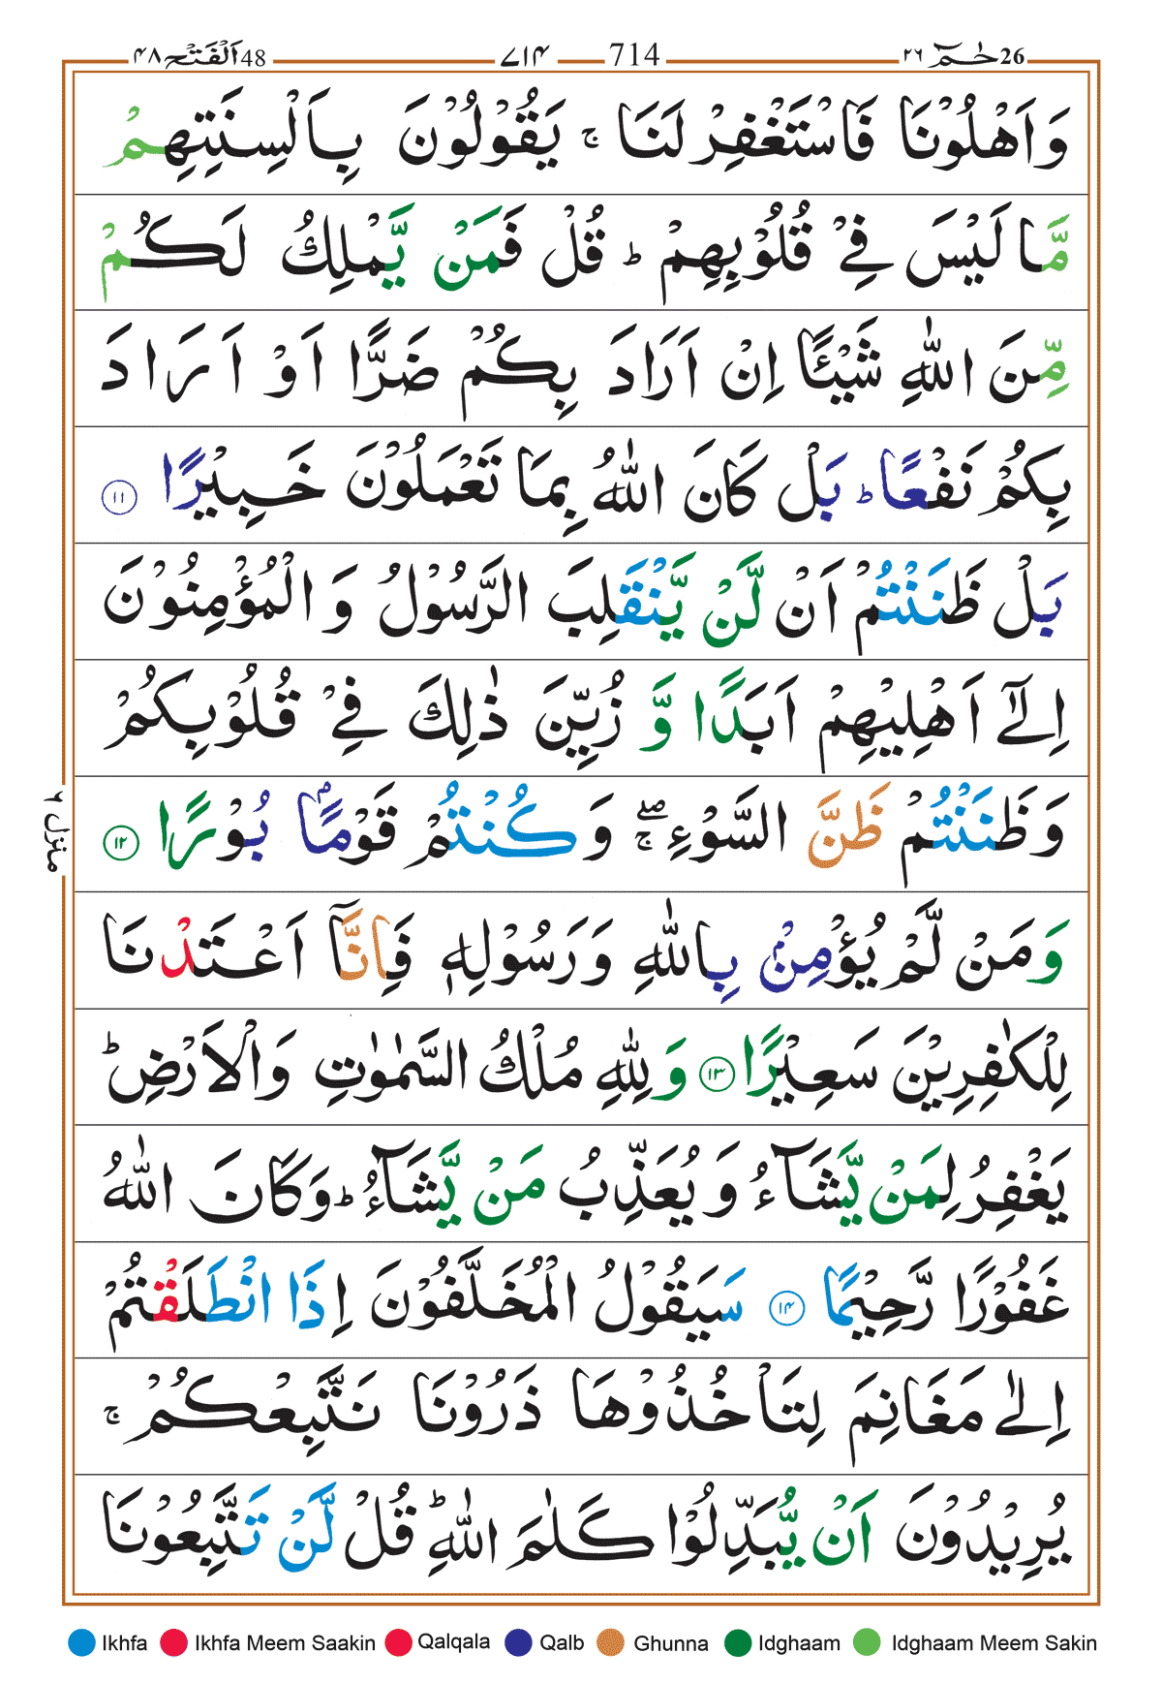 26 حٰمٓ ٢٦ 714 ٧١٤ 48 اَلْفَتْح ٤٨
وَاَهْلُوْنَا فَاسْتَغْفِرْ لَنَا ۚ يَقُوْلُوْنَ بِاَلْسِنَتِهِمْ
مَّا لَيْسَ فِيْ قُلُوْبِهِمْ ؕ قُلْ فَمَنْ يَّمْلِكُ لَكُمْ
مِّنَ اللّٰهِ شَيْـًٔا اِنْ اَرَادَ بِكُمْ ضَرًّا اَوْ اَرَادَ
بِكُمْ نَفْعًا ؕ بَلْ كَانَ اللّٰهُ بِمَا تَعْمَلُوْنَ خَبِيْرًا ١١
بَلْ ظَنَنْتُمْ اَنْ لَّنْ يَّنْقَلِبَ الرَّسُوْلُ وَ الْمُؤْمِنُوْنَ
اِلٰٓى اَهْلِيْهِمْ اَبَدًا وَّ زُيِّنَ ذٰلِكَ فِيْ قُلُوْبِكُمْ
وَظَنَنْتُمْ ظَنَّ السَّوْءِ ۖۚ وَكُنْتُمْ قَوْمًۢا بُوْرًا ١٢
وَمَنْ لَّمْ يُؤْمِنْۢ بِاللّٰهِ وَرَسُوْلِهٖ فَاِنَّاۤ اَعْتَدْنَا
لِلْكٰفِرِيْنَ سَعِيْرًا ١٣ وَلِلّٰهِ مُلْكُ السَّمٰوٰتِ وَالْاَرْضِ ؕ
يَغْفِرُ لِمَنْ يَّشَآءُ وَ يُعَذِّبُ مَنْ يَّشَآءُ ؕ وَكَانَ اللّٰهُ
غَفُوْرًا رَّحِيْمًا ١٤ سَيَقُوْلُ الْمُخَلَّفُوْنَ اِذَا انْطَلَقْتُمْ
اِلٰى مَغَانِمَ لِتَاْخُذُوْهَا ذَرُوْنَا نَتَّبِعْكُمْ ۚ
يُرِيْدُوْنَ اَنْ يُّبَدِّلُوْا كَلٰمَ اللّٰهِ ؕ قُلْ لَّنْ تَتَّبِعُوْنَا
منزل ٦
Ikhfa Ikhfa Meem Saakin Qalqala Qalb Ghunna Idghaam Idghaam Meem Sakin